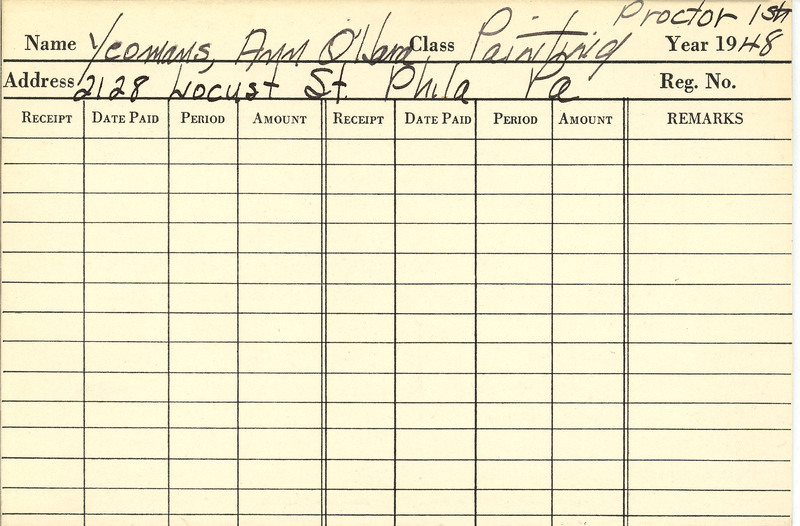 Proctor 1st
Name Yeomans, Ann O'Hara Class Painting Year 1948
Address 2128 Locust St. Phila Pa Reg. No.
RECEIPT DATE PAID PERIOD AMOUNT RECEIPT DATE PAID PERIOD AMOUNT REMARKS